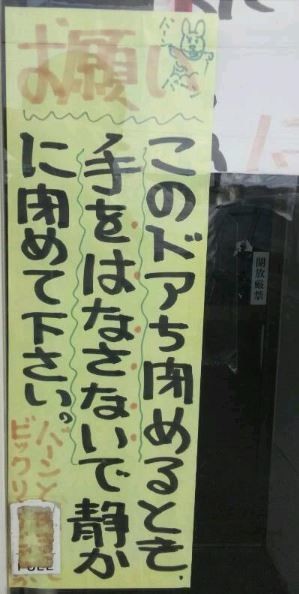 お願い
このドアち閉めるとき、
手をはなさないで静か
に閉めて下さい。
バーンと
ビックリ
開放厳禁